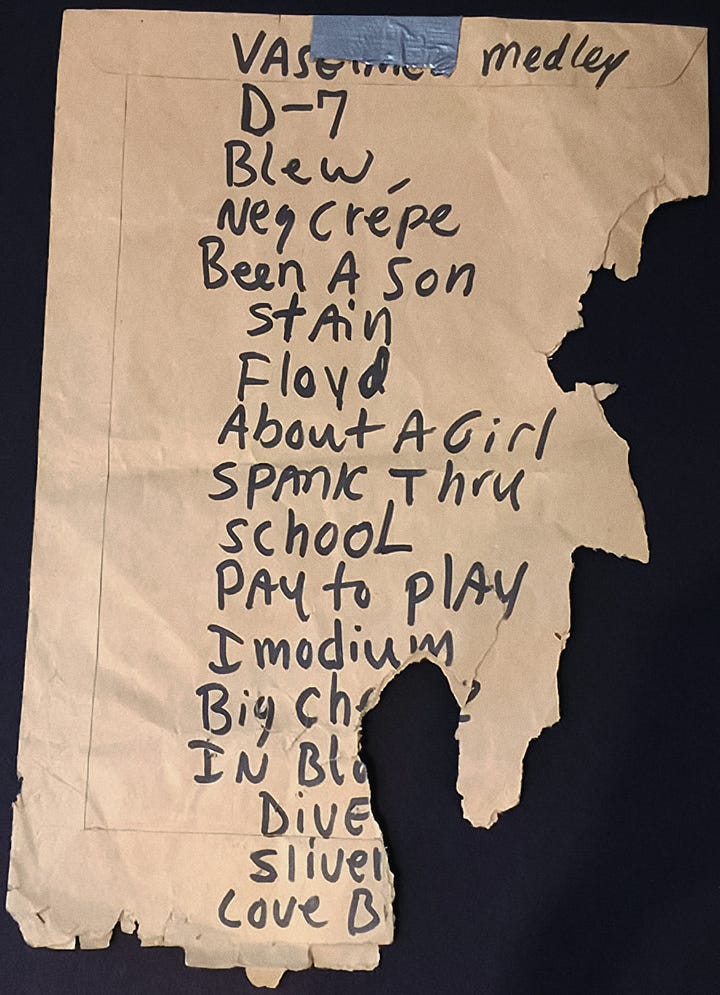 medley
D-7
Blew
Neg Crepe
Been A Son
Stain
Floyd
About A Girl
Spank Thru
School
Pay to play
Imodium
Big Ch
IN Blo
Dive
Sliver
Love B